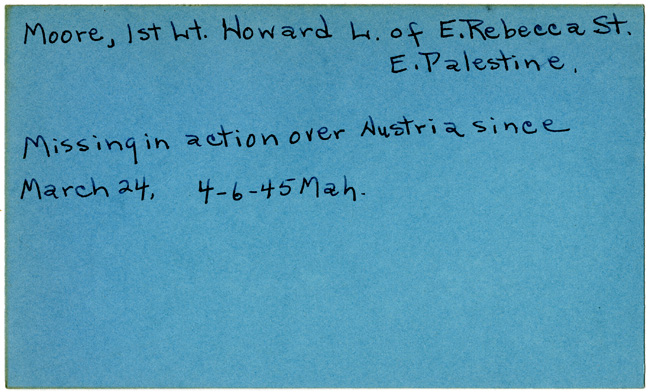 Moore, 1st Lt. Howard L. of E. Rebecca St.
E. Palestine.
Missing in action over Austria since
March 24, 4-6-45 Mah.